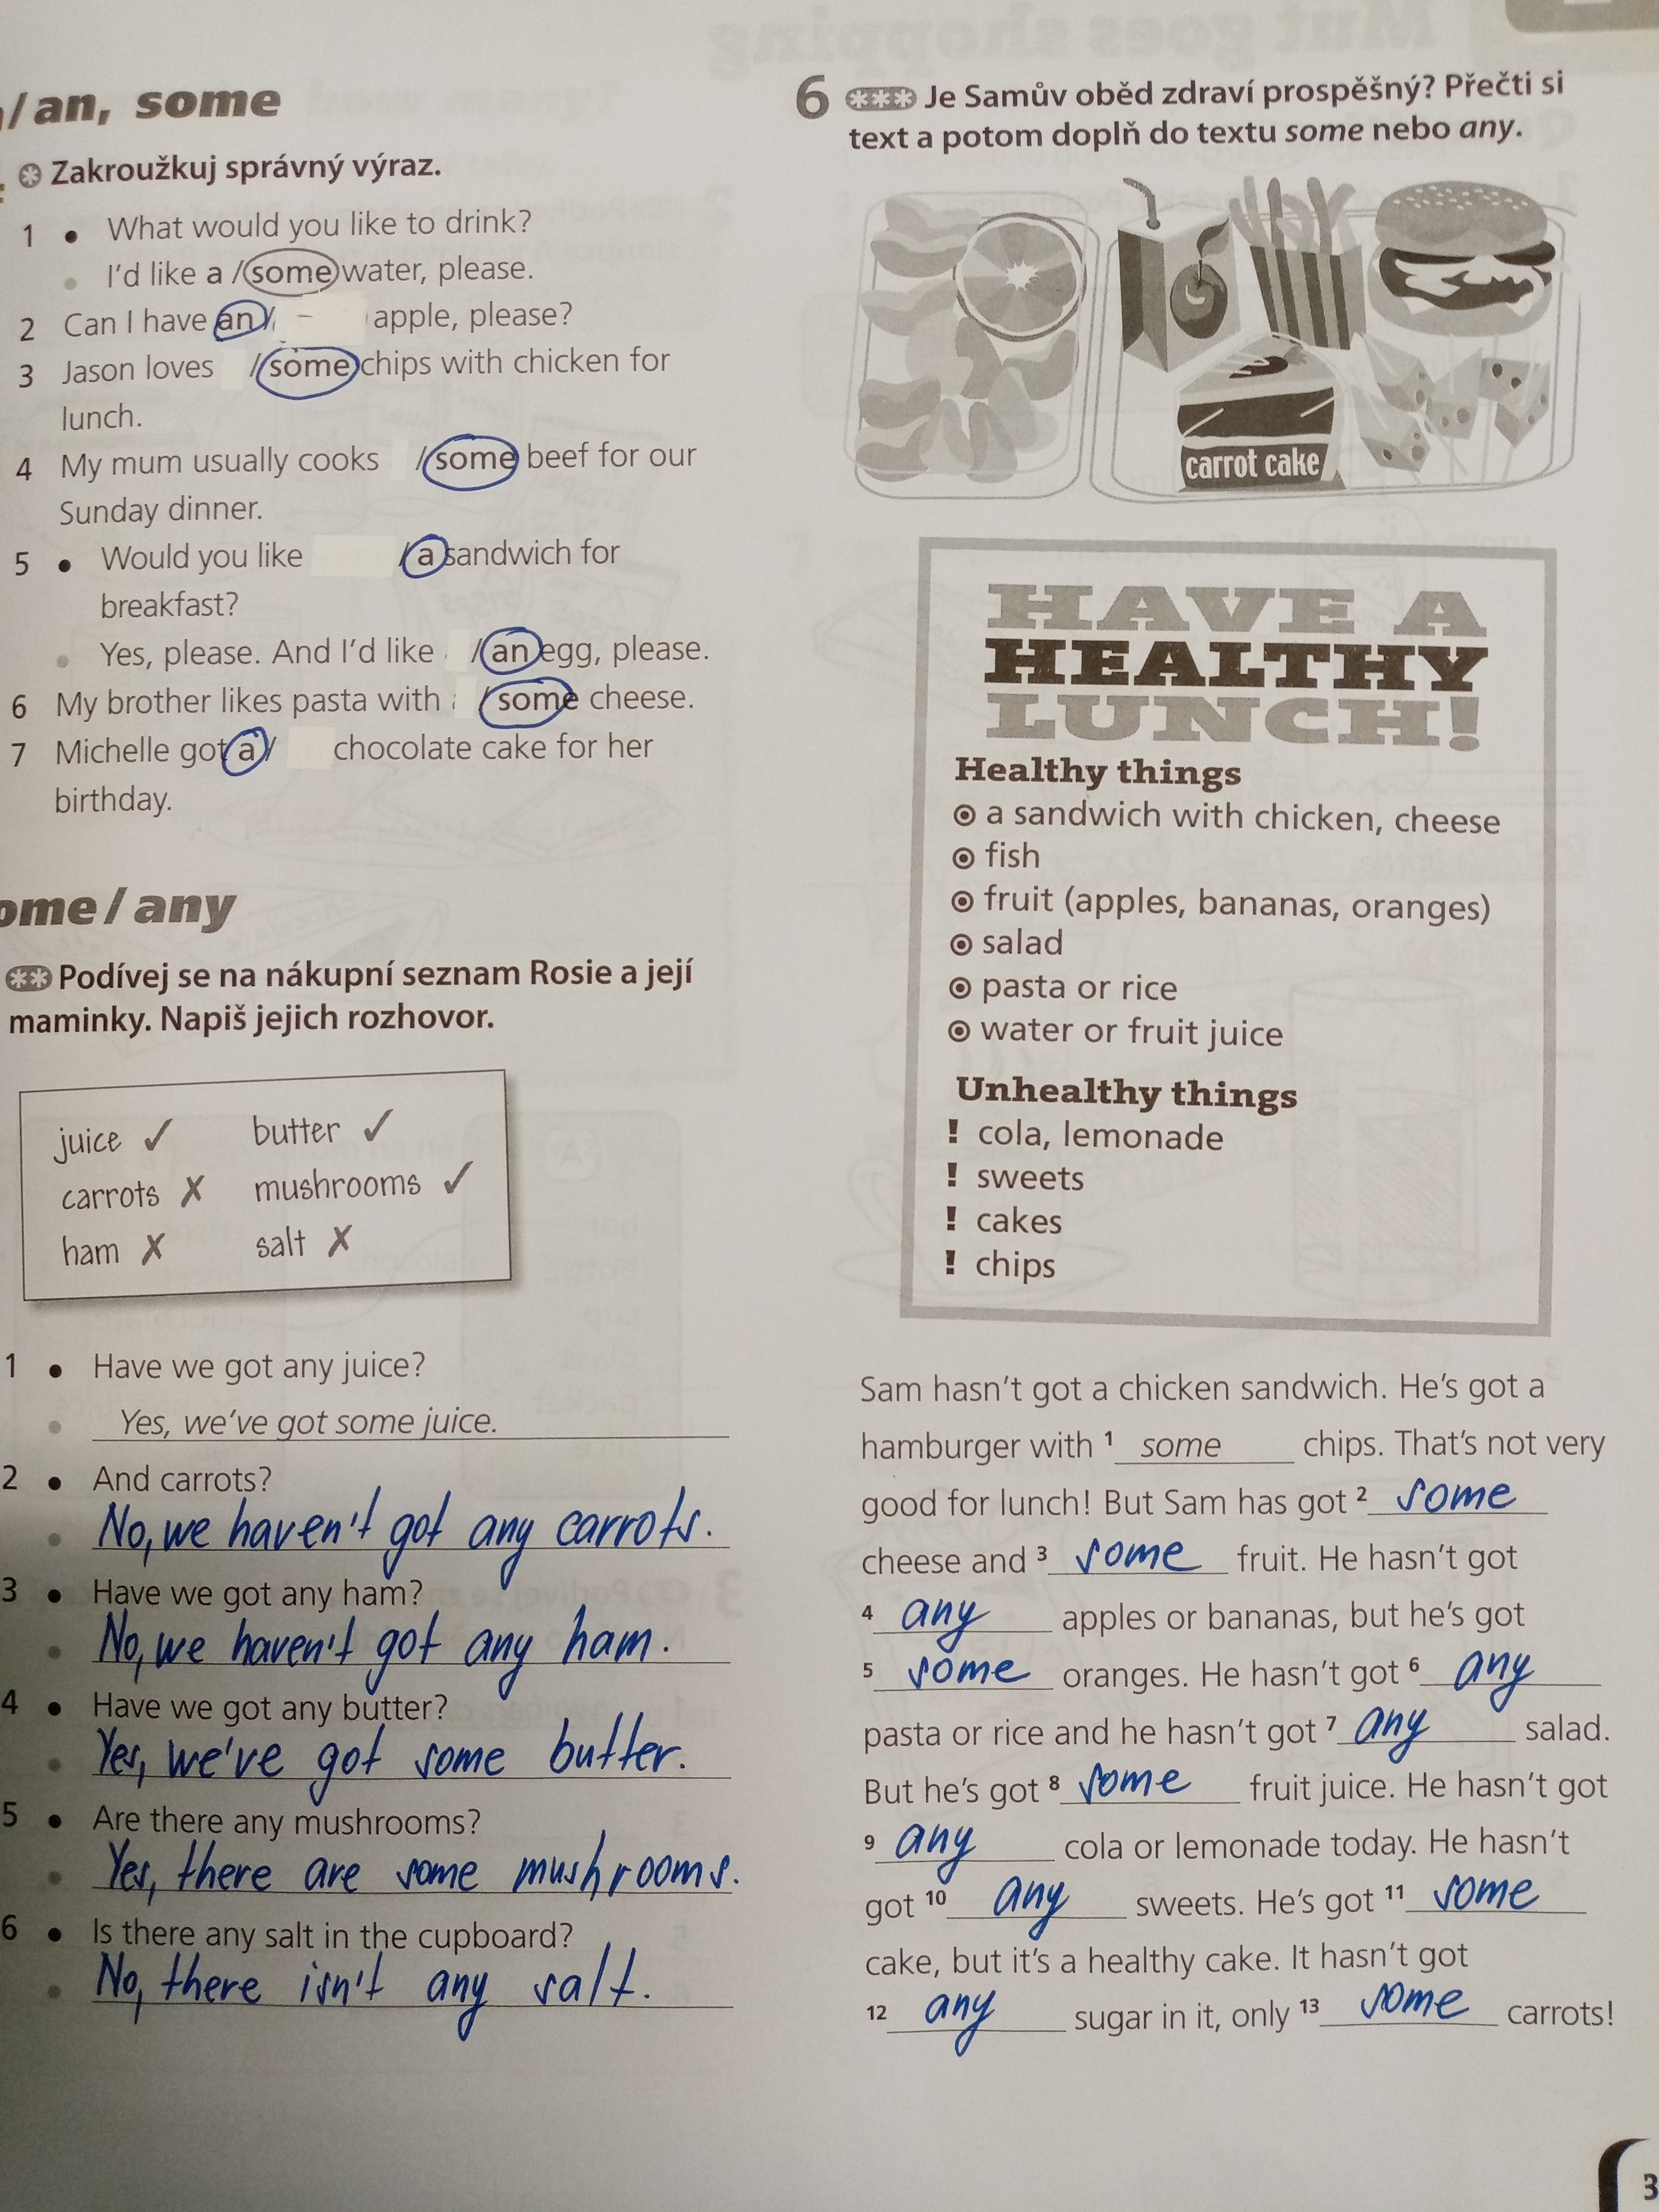 /an, some
Zakroužkuj správný výraz.
1 • What would you like to drink?
• I'd like a / some water, please.
2 Can I have an / apple, please?
3 Jason loves / some chips with chicken for
lunch.
4 My mum usually cooks / some beef for our
Sunday dinner.
5 • Would you like / a sandwich for
breakfast?
• Yes, please. And I'd like / an egg, please.
6 My brother likes pasta with / some cheese.
7 Michelle got a / chocolate cake for her
birthday.
ome / any
Podívej se na nákupní seznam Rosie a její
maminky. Napiš jejich rozhovor.
juice ✓ butter ✓
carrots ✗ mushrooms ✓
ham ✗ salt ✗
1 • Have we got any juice?
• Yes, we've got some juice.
2 • And carrots?
• No, we haven't got any carrots.
3 • Have we got any ham?
• No, we haven't got any ham.
4 • Have we got any butter?
• Yes, we've got some butter.
5 • Are there any mushrooms?
• Yes, there are some mushrooms.
6 • Is there any salt in the cupboard?
• No, there isn't any salt.
6 Je Samův oběd zdraví prospěšný? Přečti si
text a potom doplň do textu some nebo any.
carrot cake
HAVE A
HEALTHY
LUNCH!
Healthy things
a sandwich with chicken, cheese
fish
fruit (apples, bananas, oranges)
salad
pasta or rice
water or fruit juice
Unhealthy things
! cola, lemonade
! sweets
! cakes
! chips
Sam hasn't got a chicken sandwich. He's got a
hamburger with 1 some chips. That's not very
good for lunch! But Sam has got 2 some
cheese and 3 some fruit. He hasn't got
4 any apples or bananas, but he's got
5 some oranges. He hasn't got 6 any
pasta or rice and he hasn't got 7 any salad.
But he's got 8 some fruit juice. He hasn't got
9 any cola or lemonade today. He hasn't
got 10 any sweets. He's got 11 some
cake, but it's a healthy cake. It hasn't got
12 any sugar in it, only 13 some carrots!
3